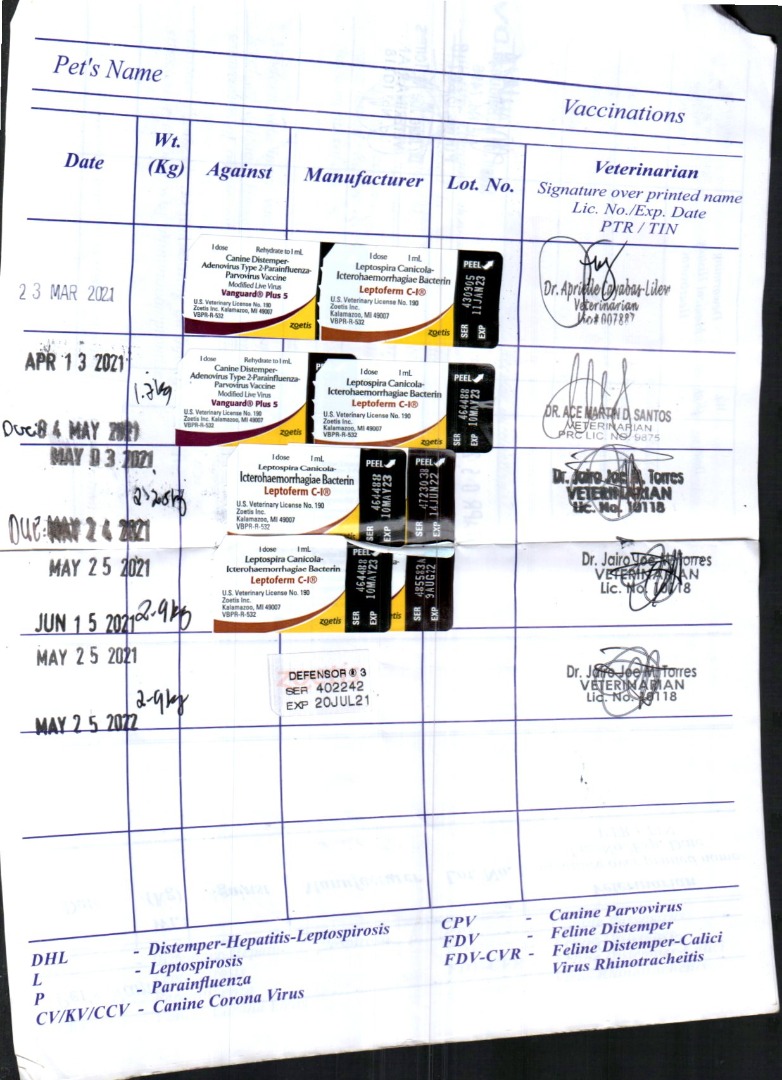 Pet's Name
Vaccinations
Date
Wt.
(Kg)
Against
Manufacturer
Lot. No.
Veterinarian
Signature over printed name
Lic. No./Exp. Date
PTR / TIN
23 MAR 2021
1 dose Rehydrate to 1 mL
Canine Distemper-
Adenovirus Type 2-Parainfluenza-
Parvovirus Vaccine
Modified Live Virus
Vanguard® Plus 5
U.S. Veterinary License No. 190
Zoetis Inc.
Kalamazoo, MI 49007
VBPR-R-532
zoetis
1 dose 1 mL
Leptospira Canicola-
Icterohaemorrhagiae Bacterin
Leptoferm C-I®
U.S. Veterinary License No. 190
Zoetis Inc.
Kalamazoo, MI 49007
VBPR-R-532
zoetis
PEEL
SER 430905
EXP 11JAN23
Veterinarian
APR 13 2021
1 dose Rehydrate to 1 mL
Canine Distemper-
Adenovirus Type 2-Parainfluenza-
Parvovirus Vaccine
Modified Live Virus
Vanguard® Plus 5
U.S. Veterinary License No. 190
Zoetis Inc.
Kalamazoo, MI 49007
VBPR-R-532
zoetis
1 dose 1 mL
Leptospira Canicola-
Icterohaemorrhagiae Bacterin
Leptoferm C-I®
U.S. Veterinary License No. 190
Zoetis Inc.
Kalamazoo, MI 49007
VBPR-R-532
zoetis
PEEL
SER 464488
EXP 10MAY23
DR. ACE MARTIN D. SANTOS
VETERINARIAN
PRC LIC. NO. 9875
Due: 04 MAY 2021
MAY 03 2021
1 dose 1 mL
Leptospira Canicola-
Icterohaemorrhagiae Bacterin
Leptoferm C-I®
U.S. Veterinary License No. 190
Zoetis Inc.
Kalamazoo, MI 49007
VBPR-R-532
zoetis
PEEL
SER 464488
EXP 10MAY23
PEEL
EXP 14JUN22
Dr. Jairo Joe M. Torres
VETERINARIAN
Lic. No. 10118
DUE: MAY 24 2021
MAY 25 2021
1 dose 1 mL
Leptospira Canicola-
Icterohaemorrhagiae Bacterin
Leptoferm C-I®
U.S. Veterinary License No. 190
Zoetis Inc.
Kalamazoo, MI 49007
VBPR-R-532
zoetis
PEEL
SER 464488
EXP 10MAY23
SER 485583A
EXP 9AUG22
Dr. Jairo Joe M. Torres
VETERINARIAN
Lic. No. 10118
JUN 15 2021
2-9kg
MAY 25 2021
DEFENSOR ® 3
SER 402242
EXP 20JUL21
Dr. Jairo Joe M. Torres
VETERINARIAN
Lic. No. 10118
2-9kg
MAY 25 2022
DHL - Distemper-Hepatitis-Leptospirosis
L - Leptospirosis
P - Parainfluenza
CV/KV/CCV - Canine Corona Virus
CPV - Canine Parvovirus
FDV - Feline Distemper
FDV-CVR - Feline Distemper-Calici
Virus Rhinotracheitis